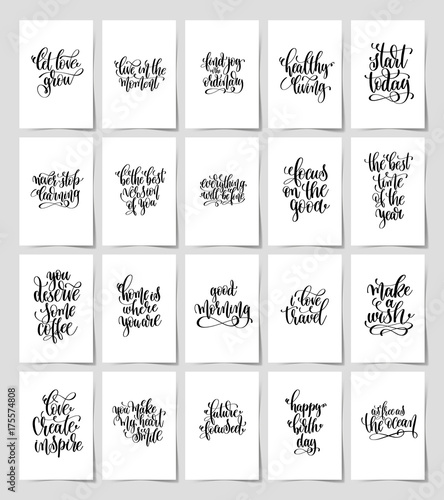 let love
grow
live in the
moment
find joy
in the
ordinary
healthy
living
start
today
never stop
learning
be the best
version
of you
everything
will be fine
focus
on the
good
the best
time
of the
year
you
deserve
some
coffee
home is
where
you are
good
morning
i love
travel
make
a
wish
love
create
inspire
you make
my heart
smile
future
focused
happy
birth
day
as free as
the ocean
175574808